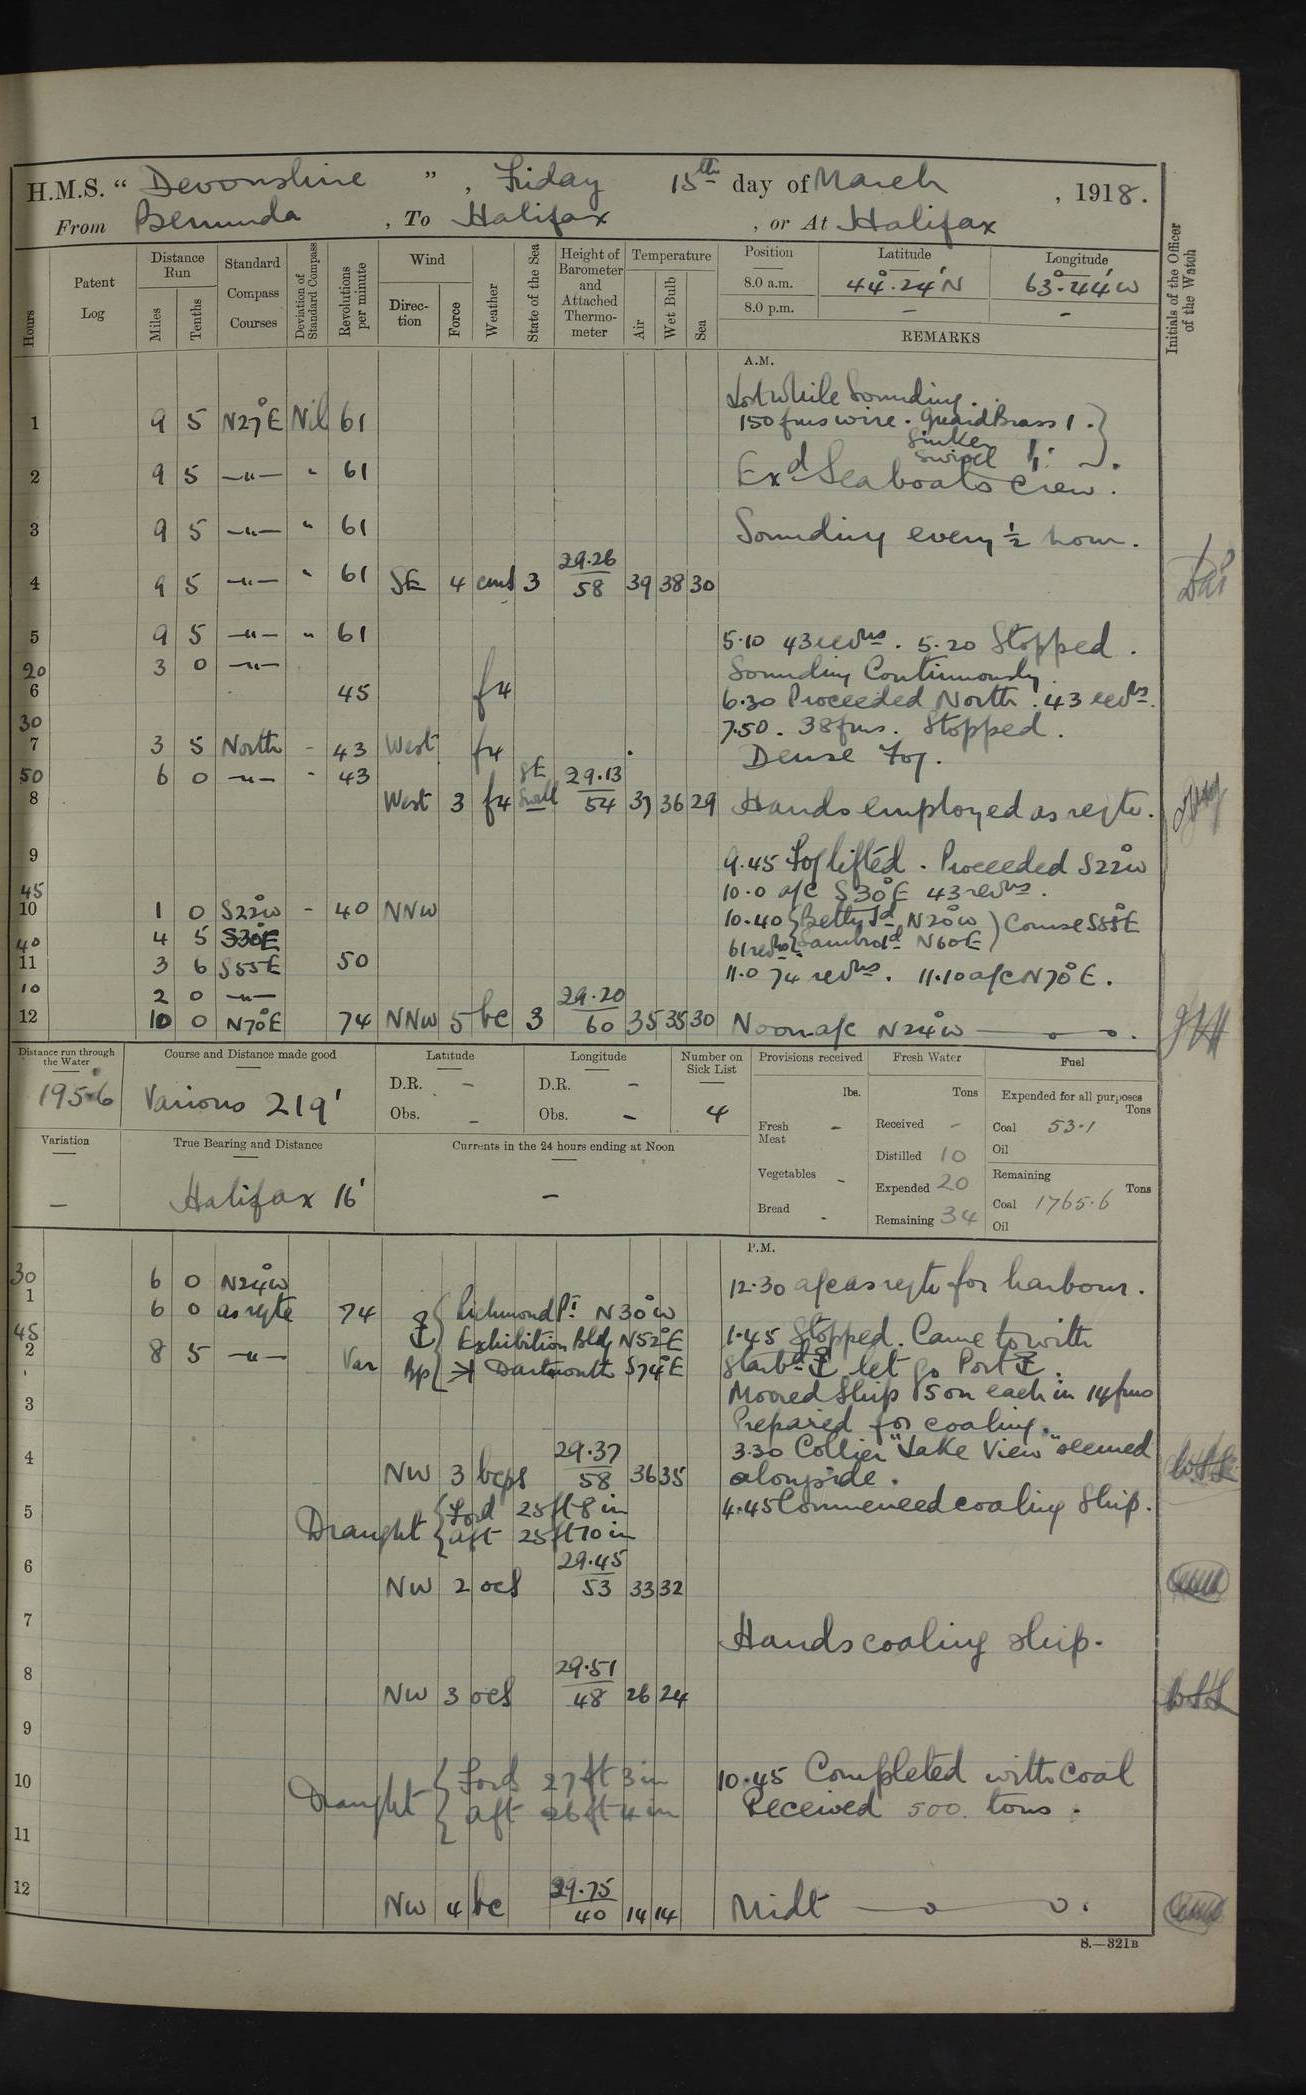 H.M.S. “ Devonshire ” , Friday 15th day of March , 1918.
From Bermuda , To Halifax , or At Halifax
Hours
Patent Log
Distance Run
Miles
Tenths
Standard Compass Courses
Deviation of Standard Compass
Revolutions per minute
Wind
Direction
Force
Weather
State of the Sea
Height of Barometer and Attached Thermometer
Temperature
Air
Wet Bulb
Sea
Position Latitude Longitude
8.0 a.m. 44°.24'N 63°.44'W
8.0 p.m. – –
REMARKS
Initials of the Officer of the Watch
A.M.
Lost while Sounding.
1 9 5 N27°E Nil 61 150 fms wire. Guard Brass 1.
Sinker 1.
Swivel 1.
2 9 5 —"— " 61 Exd Seaboats Crew.
3 9 5 —"— " 61 Sounding every ½ hour.
4 9 5 —"— " 61 SE 4 3 29.26/58 39 38 30
5 9 5 —"— " 61 5.10 43 revns. 5.20 Stopped.
20 3 0 —"— Sounding Continuously.
6 45 f4 6.30 Proceeded North. 43 revns.
30 7.50. 38 fms. Stopped.
7 3 5 North - 43 West f4 Dense Fog.
50 6 0 —"— - 43
8 West 3 f4 SE Swell 29.13/54 37 36 29 Hands employed as reqte.
9 9.45 Fog lifted. Proceeded S22°W
45 10.0 a/c S30°E 43 revns.
10 1 0 S22°W - 40 NNW 10.40 { Betty Id N20°W ) Course S55°E
40 4 5 S30°E 61 revns { Sambro Id N60E
11 3 6 S55E 50 11.0 74 revns. 11.10 a/c N70°E.
10 2 0 —"—
12 10 0 N70°E 74 NNW 5 bc 3 29.20/60 35 35 30 Noon a/c N24°W
Distance run through the Water
195.6
Course and Distance made good
Various 219'
Latitude
D.R. –
Obs. –
Longitude
D.R. –
Obs. –
Number on Sick List
4
Provisions received
lbs.
Fresh Meat -
Vegetables -
Bread -
Fresh Water
Tons
Received -
Distilled 10
Expended 20
Remaining 34
Fuel
Expended for all purposes
Tons
Coal 53.1
Oil
Remaining
Tons
Coal 1765.6
Oil
Variation
–
True Bearing and Distance
Halifax 16'
Currents in the 24 hours ending at Noon
–
P.M.
30 6 0 N24°W 12.30 a/c as reqte for harbour.
1 6 0 as reqte 74 { Richmond Pt. N30°W
45 Exhibition Bldg N52°E 1.45 Stopped. Came to with
2 8 5 —"— Var Bgs { Dartmouth S74°E Starbd ⚓ let go Port ⚓.
3 Moored Ship 5 on each in 14 fms
Prepared for coaling.
4 NW 3 bcps 29.37/58 36 35 3.30 Collier "Lake View" secured
alongside.
5 Draught { Ford 25 ft 8 in 4.45 Commenced coaling Ship.
aft 25 ft 10 in
6 NW 2 ocs 29.45/53 33 32
7 Hands coaling ship.
8 NW 3 ocs 29.51/48 26 24
9
10 Draught { Ford 27 ft 3 in 10.45 Completed with Coal
aft 26 ft 4 in Received 500 tons.
11
12 NW 4 bc 29.75/40 14 14 Midt
S.—321B